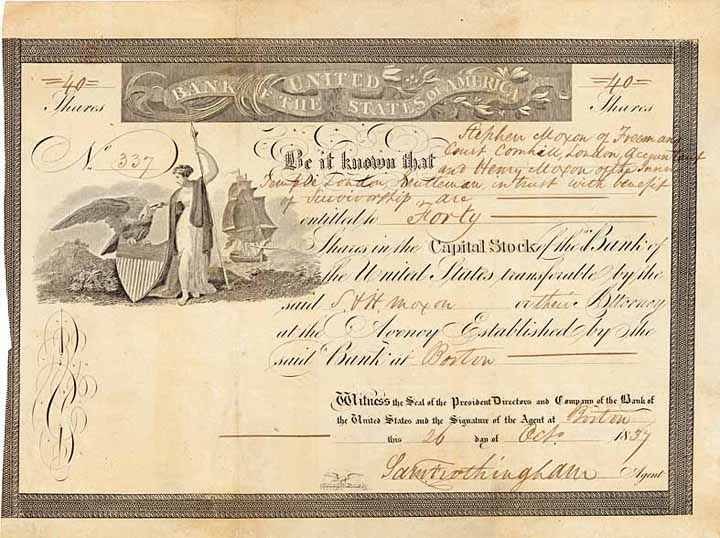 40 40
Shares Shares
BANK OF THE UNITED STATES OF AMERICA
No 337
Stephen Moxon of Freemans
Court Cornhill, London, Accountant
Be it known that and Henry Moxon of the Inner
Temple London, Gentleman, in trust with benefit
of Survivorship, are
entitled to Forty
Shares in the Capital Stock of the "Bank of
the United States, transferable by the
said S & H. Moxon or their Attorney
at the Agency Established by the
said "Bank" at Boston
Witness the Seal of the President Directors and Company of the Bank of
the United States and the Signature of the Agent at Boston
this 26 day of Octo 1837
Sam Frothingham Agent